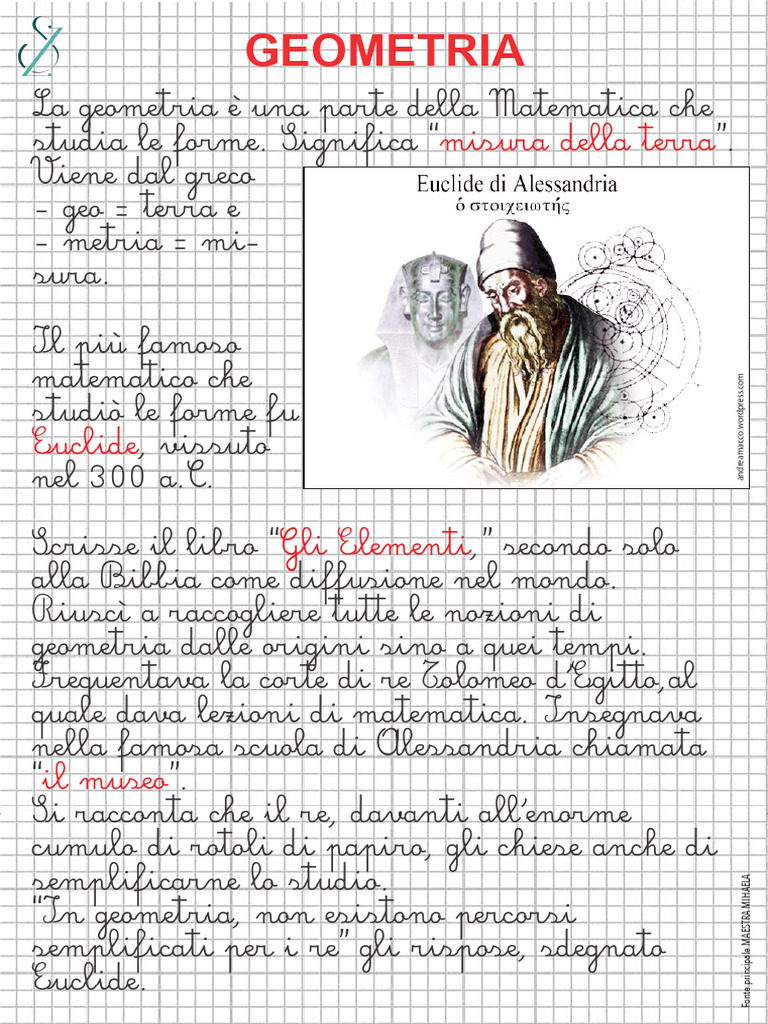 GEOMETRIA
La geometria è una parte della Matematica che
studia le forme. Significa "misura della terra".
Viene dal greco
- geo = terra e
- metria = mi-
sura.
Euclide di Alessandria
ὁ στοιχειωτής
andreamacco.wordpress.com
Il più famoso
matematico che
studiò le forme fu
Euclide, vissuto
nel 300 a.C.
Scrisse il libro "Gli Elementi," secondo solo
alla Bibbia come diffusione nel mondo.
Riuscì a raccogliere tutte le nozioni di
geometria dalle origini sino a quei tempi.
Frequentava la corte di re Tolomeo d'Egitto,al
quale dava lezioni di matematica. Insegnava
nella famosa scuola di Alessandria chiamata
"il museo".
Si racconta che il re, davanti all'enorme
cumulo di rotoli di papiro, gli chiese anche di
semplificarne lo studio.
"In geometria, non esistono percorsi
semplificati per i re" gli rispose, sdegnato
Euclide.
Fonte principale MAESTRA MIHAELA